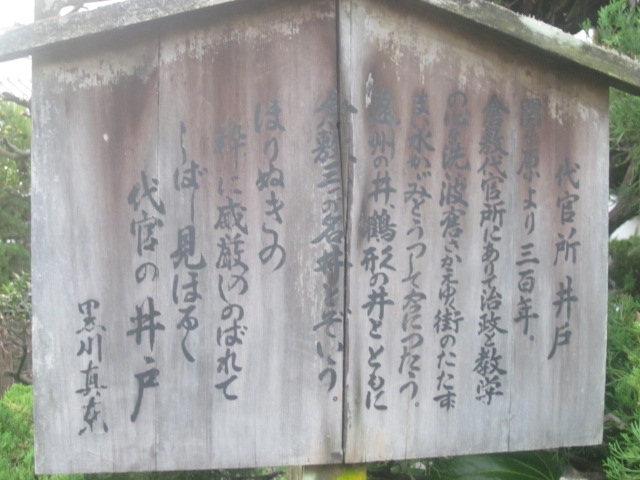 代官所井戸
関ヶ原より三百年。
倉敷代官所にありて治政と教学
の心を洗い波磨さかえゆく街のたたす
ま水かゞみとうつして宮につたう。
遠州の井、鶴形の井とともに
倉敷三の名井とぞいう。
ほりぬきの
粋に威厳のしのばれて
しばし見ほるゝ
代官の井戸
黒川真